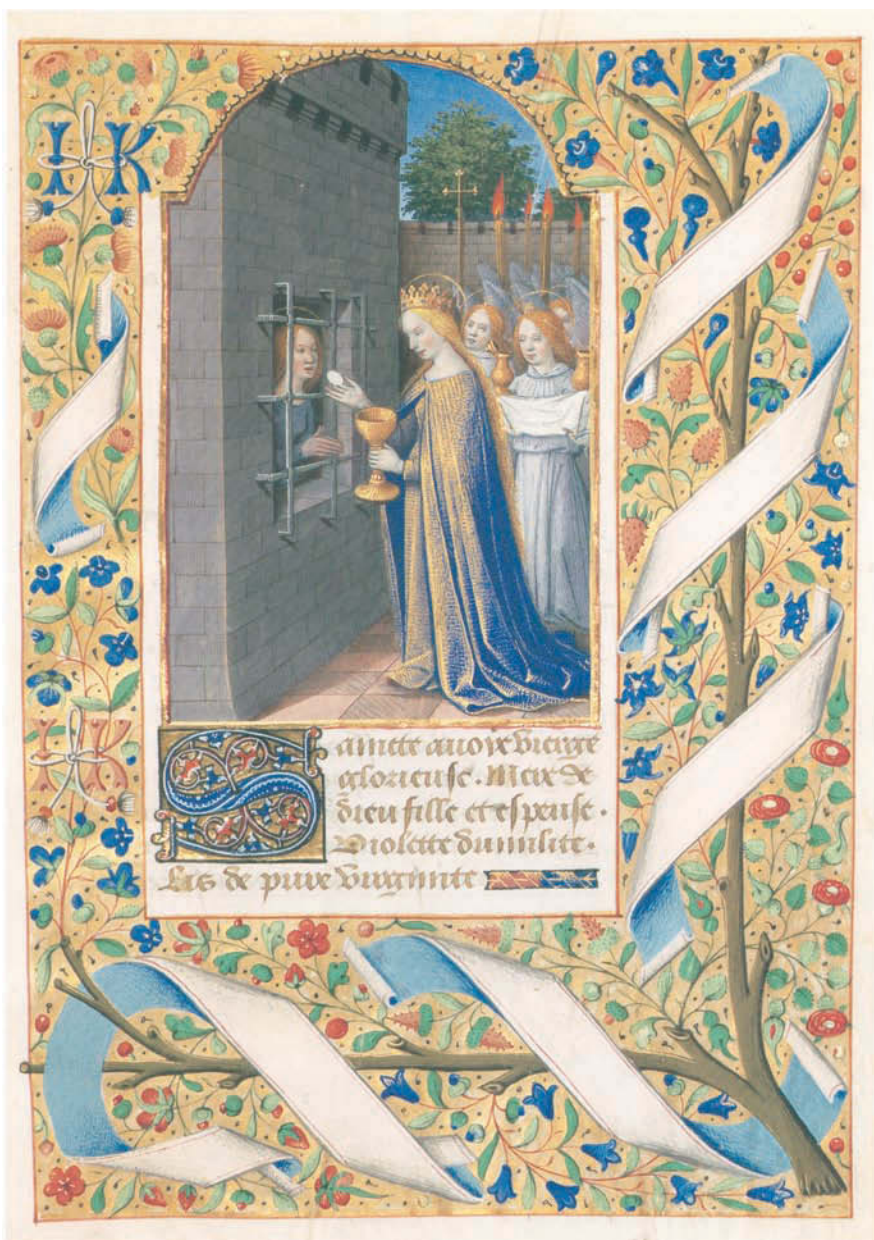 I K
Saincte auoye vierge
glorieuse. Mere de
dieu fille et espouse.
Violette dumilite.
Lis de pure virginite
I K